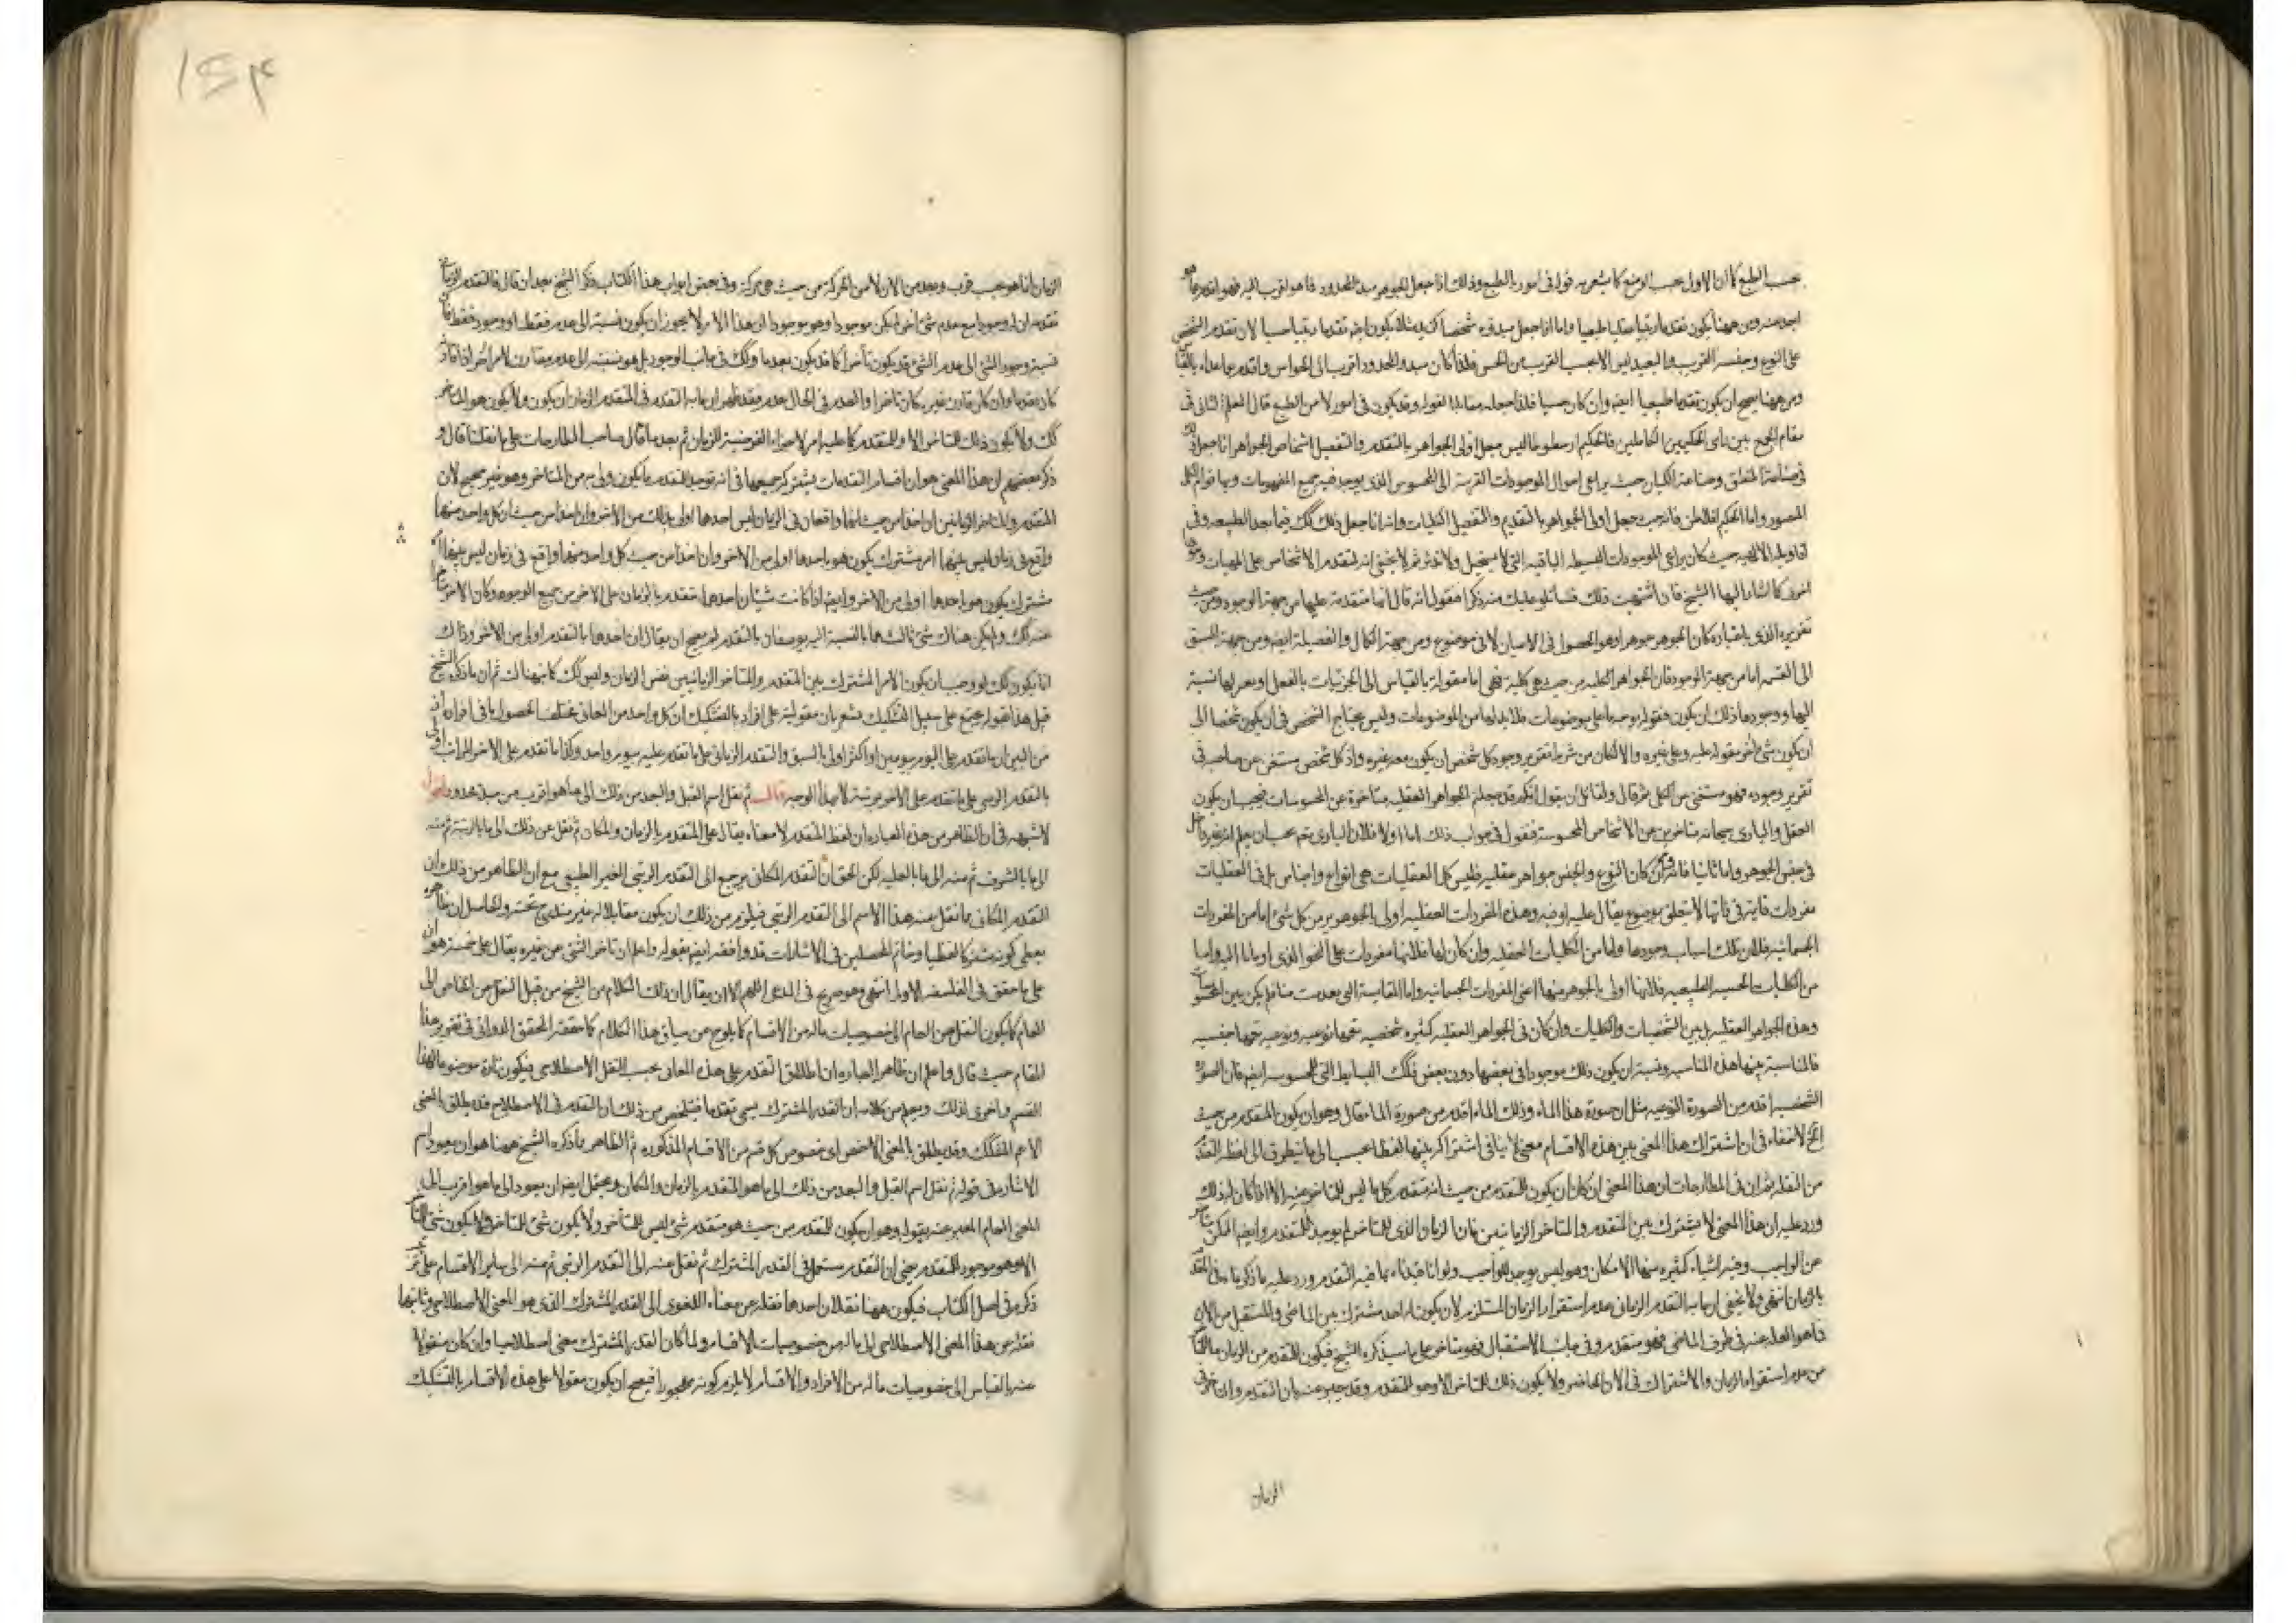 بحسب الطبع كما ان الاول بحسب الوضع كما يشعر به قوله في امور بالطبع وذلك اذا جعل الجوهر مبدأ المحدود فما هو اقرب اليه فهو اقدم مما هو
ابعد منه ومن ههنا يكون تقدما رتبيا عقليا طبيعيا واما اذا جعل مبدؤه شخصا كزيد مثلا يكون ايضا تقدما رتبيا حسيا لان تقدم الشخص
على النوع وجنسه القريب والبعيد ليس الا بحسب القرب من الحس فلذا كان مبدؤ المحدود اقرب الى الحواس واقدم مما عداه بالقياس
ومن ههنا يصح ان يكون تقدما طبيعيا ايضا وان كان حسيا فلذا جعله مقابلا لقوله وقد يكون في امور لا من الطبع قال المعلم الثاني في
مقام الجمع بين رأي الحكيمين الكاملين فالحكيم ارسطوطاليس جعل اولى الجواهر بالتقدم والتفضيل اشخاص الجواهر انما جعل ذلك
في صناعة المنطق وصناعة الكيان حيث يراعي احوال الموجودات القريبة الى المحسوس الذي يوجد فيه جميع المفهومات وبها قوام الكلي
المتصور واما الحكيم افلاطن فانه حيث جعل اولى الجواهر بالتقديم والتفضيل الكليات وانه انما جعل ذلك كك فيما بعد الطبيعه وفي
اقاويله الالهيه حيث كان يراعي الموجودات البسيطه الباقيه التي لا يستحيل ولا تدثر ثم لا يخفى انه لتقدم الاشخاص على المهيات وجوه
اخرى كما اشار اليها الشيخ فان اشتهيت ذلك فساتلو عليك منه ذكرا فنقول انه قال انها متقدمة عليها من جهة الوجود ومن حيث
تقرره الذي باعتباره كان الجوهر جوهرا وهو الحصول في الاعيان لا في موضوع ومن جهة الكمال والفضيلة ايضا ومن جهة السبق
الى التسمية اما من جهة الوجود فان الجواهر الكليه من حيث هي كلية فهي اما مقولة بالقياس الى الجزئيات بالفعل او بعد لها نسبة
اليها ووجودها ذلك ان يكون مقولة بوجه ما على موضوعات فلا بد لها من الموضوعات وليس يحتاج الشخص في ان يكون شخصا الى
ان يكون شيء آخر مقولا عليه وعلى غيره والا لكان من شرط تقرير وجود كل شخص ان يكون معه غيره واذ كل شخص مستغن عن صاحبه في
تقرير وجوده فهو مستغن عن الكلي ثم قال ولقائل ان يقول انكم قد جعلتم الجواهر العقليه متاخرة عن المحسوسات فيجب ان يكون
العقل والباري سبحانه متاخرين عن الاشخاص المحسوسة فنقول في جواب ذلك اما اولا فلان الباري يجب ان يعلم انه غير داخل
في جنس الجوهر واما ثانيا فانه وان كان النوع والجنس جواهر عقليه فليس كل العقليات هي انواع واجناس بل في العقليات
مفردات قائمة في ذاتها لا تتعلق بموضوع يقال عليه او فيه وهذه المفردات العقليه اولى بالجوهريه من كل شيء اما من المفردات
الجسمانيه فلان تلك اسباب وجودها واما من الكليات العقليه وان كان لها فلانها مفردات على النحو الذي اومانا اليه واما
من الكليات الحسيه الطبيعيه فلانها اولى بالجوهر منها اعني المفردات الجسمانيه واما المقايسة التي تقدمت منا فلم يكن بين المحسوسات
وهذه الجواهر العقليه بل بين الشخصيات والكليات وان كان في الجواهر العقليه كثيره شخصيه تعمها نوعيه ونوعيه تعمها جنسيه
فالمناسبة بينها هذه المناسبه ويشبه ان يكون ذلك موجودا في بعضها دون بعض فكك البسايط التي للمحسوسه ايضا فان الصورة
الشخصيه اقدم من الصورة النوعيه مثل ان صورة هذا الماء وذلك الماء اقدم من صورة الماء مقال وهو ان يكون المتقدم من حيث
الخ لا خفاء في ان اشتراك هذا المعنى بين هذه الاقسام معنى لا ينافي اشتراكه بينها لفظا بحسب الى ما يتطرق الى لفظ التقدم
من النقل ثم ان في المطارحات ان هذا المعنى ان كان ان يكون للمتقدم من حيث انه متقدم كل ما ليس للمتاخر منه الا اذا كان له ذلك
ورد عليه ان هذا المعنى لا يشترك بين المتقدم والمتاخر الزمانيين فان الزمان الذي للمتاخر لم يوجد للمتقدم وايضا الممكن متاخر
عن الواجب وفيه اشياء كثيره منها الامكان وهو ليس يوجد للواجب ولو انا قيدناه بما فيه التقدم ورد عليه ما ذكرنا في التقدم
بالزمان انتهى ولا يخفى ان ما به التقدم الزماني عدم استقرار الزمان المستلزم لان يكون له احد مشترك بين الماضي والمستقبل من الآن
فما هو ابعد عنه في طرف الماضي فهو متقدم وفي جانب الاستقبال فهو متاخر على ما سيذكره الشيخ فيكون للمتقدم من الزمان ما للمتاخر
من عدم استقرار الزمان والاشتراك في الآن الحاضر ولا يكون ذلك للمتاخر الا وهو للمتقدم وقد يعبر عنه بان التقدم والتاخر في
الزمان
الزمان انما هو بحسب قرب وبعد من الآن لا من الحركة من حيث هي حركة وفي بعض ابواب هذا الكتاب ذكر الشيخ بعد ان قال فالتقدم الزماني
تقدمه ان له وجودا مع عدم شيء آخر لم يكن موجودا وهو موجود ان هذا الامر لا يجوز ان يكون نسبة الى عدم فقط او وجود فقط فان
نسبة وجود الشيء الى عدم الشيء قد يكون تأخرا كما قد يكون تقدما وكك في جانب الوجود بل هو نسبته الى عدم مقارن لامر آخر اذا قارنه
كان تقدما وان كان قارن غيره كان تاخرا والعدم في الحال عدم فقد ظهر ان ما به التقدم في المتقدم الزمان ان يكون ولا يكون هو المتاخر
كك ولا يكون ذلك للمتاخر الا وللمتقدم كما عليه امر لاجزاء الفرضية للزمان ثم بعد ما قال صاحب المطارحات على ما نقلنا قال و
ذكر بعضهم ان هذا المعنى هو ان اقسام التقدمات يشترك جميعها في انه توجد للمتقدم ما يكون اولى به من المتاخر وهو غير صحيح لان
المتقدم والمتاخر الزمانيين ان اخذا من حيث انهما واقعان في الزمان ليس احدهما اولى بذلك من الآخر وان اخذا من حيث ان كل واحد منهما
واقع في زمان ليس بينهما امر مشترك يكون هو باحدهما اولى من الآخر وان اخذا من حيث كل واحد منهما واقع في زمان ليس بينهما امر
مشترك يكون هو باحدهما اولى من الآخر وايضا اذا كانت شيئان احدهما متقدم بالزمان على الآخر من جميع الوجوه وكان الآخر متاخرا
عنه كك ولم يكن هناك شيء ثالث هما بالنسبة اليه يوصفان بالتقدم لم يصح ان يقال ان احدهما بالتقدم اولى من الآخر وذاك
انما يكون كك لو وجب ان يكون الامر المشترك بين المتقدم والمتاخر الزمانيين نفس الزمان وليس كك كما نبهناك ثم ان ما ذكره الشيخ
قبل هذا بقوله يجتمع على سبيل التشكيك يشعر بان مقوليته على افراده بالتشكيك ان كل واحد من المعاني مختلف الحصول في افراده اذ
من البين ان ما تقدم على اليوم بيومين او اكثر اولى بالسبق والتقدم الزماني على ما تقدم عليه بيوم واحد وكذا ما تقدم على الآخر بالمراتب اولى
بالتقدم الرتبي على ما تقدم على الآخر بمرتبة لا بهذا الوجه قال ثم نقل اسم القبل والبعد من ذلك الى ما هو اقرب من مبدأ محدود اقول
لا شبهه في ان الظاهر من هذه العباره ان لفظ المتقدم لا معناه يقال على المتقدم بالزمان والمكان ثم نقل عن ذلك الى ما بالرتبة ثم منه
الى ما بالشرف ثم منه الى ما بالعليه لكن الحق ان التقدم المكاني يرجع الى التقدم الرتبي الغير الطبيعي مع ان الظاهر من ذلك ان
التقدم المكاني مما نقل منه هذا الاسم الى التقدم الرتبي فيلزم من ذلك ان يكون مقابلا له غير مندرج تحته والحاصل ان ظاهره
يعطي كونه مشتركا لفظيا وخاتم المحصلين في الاشارات قد وافقه ايضا بقوله واعلم ان تاخر الشيء عن غيره يقال على خمسة هو ان
على ما حقق في الفلسفه الاولى انتهى وهو صريح في المدعى اللهم الا ان يقال ان ذلك الكلام من الشيخ من قبل النقل من الخاص الى
العام كما يكون النقل من العام الى خصوصيات ماله من الاقسام كما يلوح من سياق هذا الكلام كما حققه المحقق الدواني في تقرير هذا
المقام حيث قال واعلم ان ظاهر العباره ان اطلاق التقدم على هذه المعاني بحسب النقل الاصطلاحي فيكون تارة موضوعا لهذا
القسم واخرى لذلك ويعلم من كلامه ان القدر المشترك يسمى تقدما فيتلخص من ذلك ان التقدم في الاصطلاح قد يطلق بالمعنى
الاعم المشكك وقد يطلق بالمعنى الاخص اي خصوص كل قسم من الاقسام المذكوره ثم الظاهر ما ذكره الشيخ ههنا هو ان يعود اسم
الاشارة في قوله ثم نقل اسم القبل والبعد من ذلك الى ما هو المتقدم بالزمان والمكان ويحتمل ايضا ان يعود الى ما هو اقرب الى
المعنى العام المعبر عنه بقوله وهو ان يكون للمتقدم من حيث هو متقدم شيء ليس للمتأخر ولا يكون شيء للمتاخر
الا وهو موجود للمتقدم يعني ان التقدم مستعمل في القدر المشترك ثم نقل عنه الى التقدم الرتبي ثم منه الى ساير الاقسام على نحو
ذكره في اصل الكتاب فيكون ههنا نقلان احدهما نقله عن معناه اللغوي الى القدر المشترك الذي هو المعنى الاصطلاحي وثانيهما
نقله عن هذا المعنى الاصطلاحي الى ماله من خصوصيات الاقسام ولما كان القدر المشترك معنى اصطلاحيا وان كان منقولا
عنه بالقياس الى خصوصيات ماله من الافراد والاقسام لا يلزم كونه مهجورا فيصح ان يكون مقولا على هذه الاقسام بالتشكيك